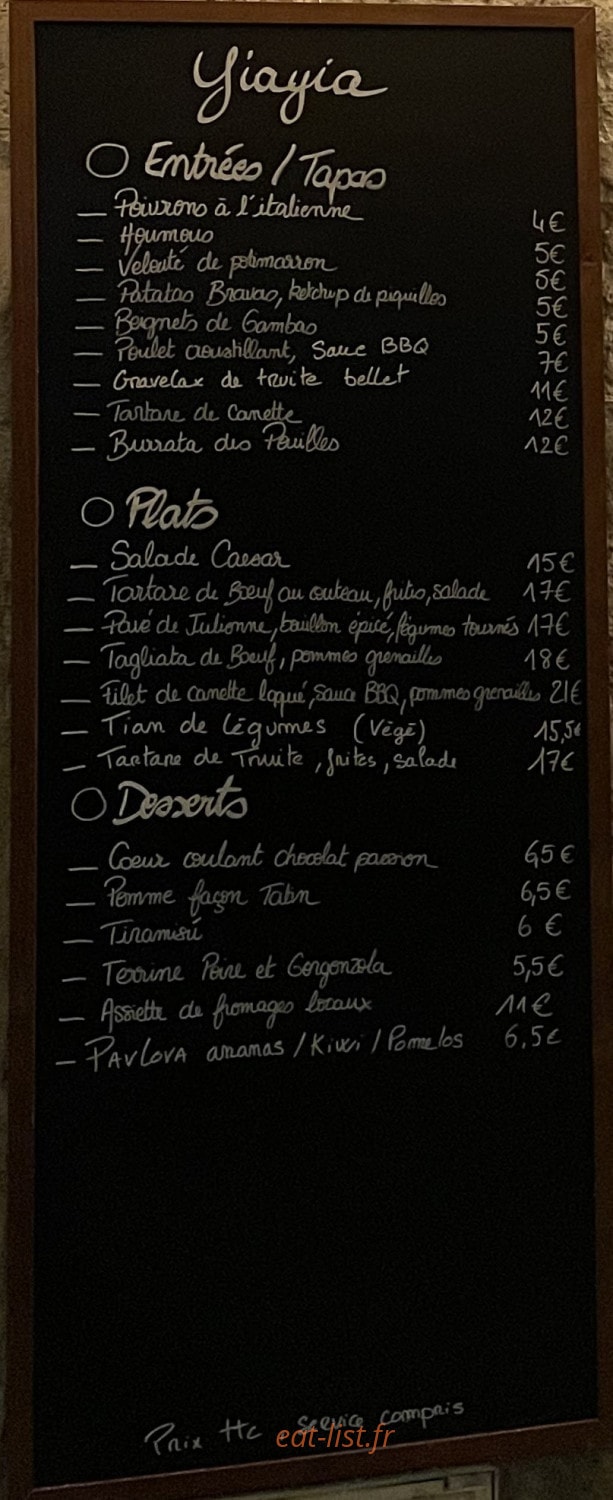 Yiayia
Entrées / Tapas
— Poivrons à l'italienne 4€
— Houmous 5€
— Velouté de potimarron 5€
— Patatas Bravas, ketchup de piquillos 5€
— Beignets de Gambas 5€
— Poulet croustillant, Sauce BBQ 7€
— Gravelax de truite bellet 11€
— Tartare de Canette 12€
— Burrata des Pouilles 12€
Plats
— Salade Caesar 15€
— Tartare de Boeuf au couteau, frites, salade 17€
— Pavé de Julienne, bouillon épicé, légumes tournés 17€
— Tagliata de Boeuf, pommes grenailles 18€
— Filet de canette laqué, sauce BBQ, pommes grenailles 21€
— Tian de légumes (Végé) 15,5€
— Tartare de Truite, frites, salade 17€
Desserts
— Coeur coulant chocolat passion 6,5€
— Pomme façon Tatin 6,5€
— Tiramisù 6 €
— Terrine Poire et Gorgonzola 5,5€
— Assiette de fromages locaux 11€
— PAVLOVA ananas / Kiwi / Pomelos 6,5€
Prix ttc service compris
eat-list.fr